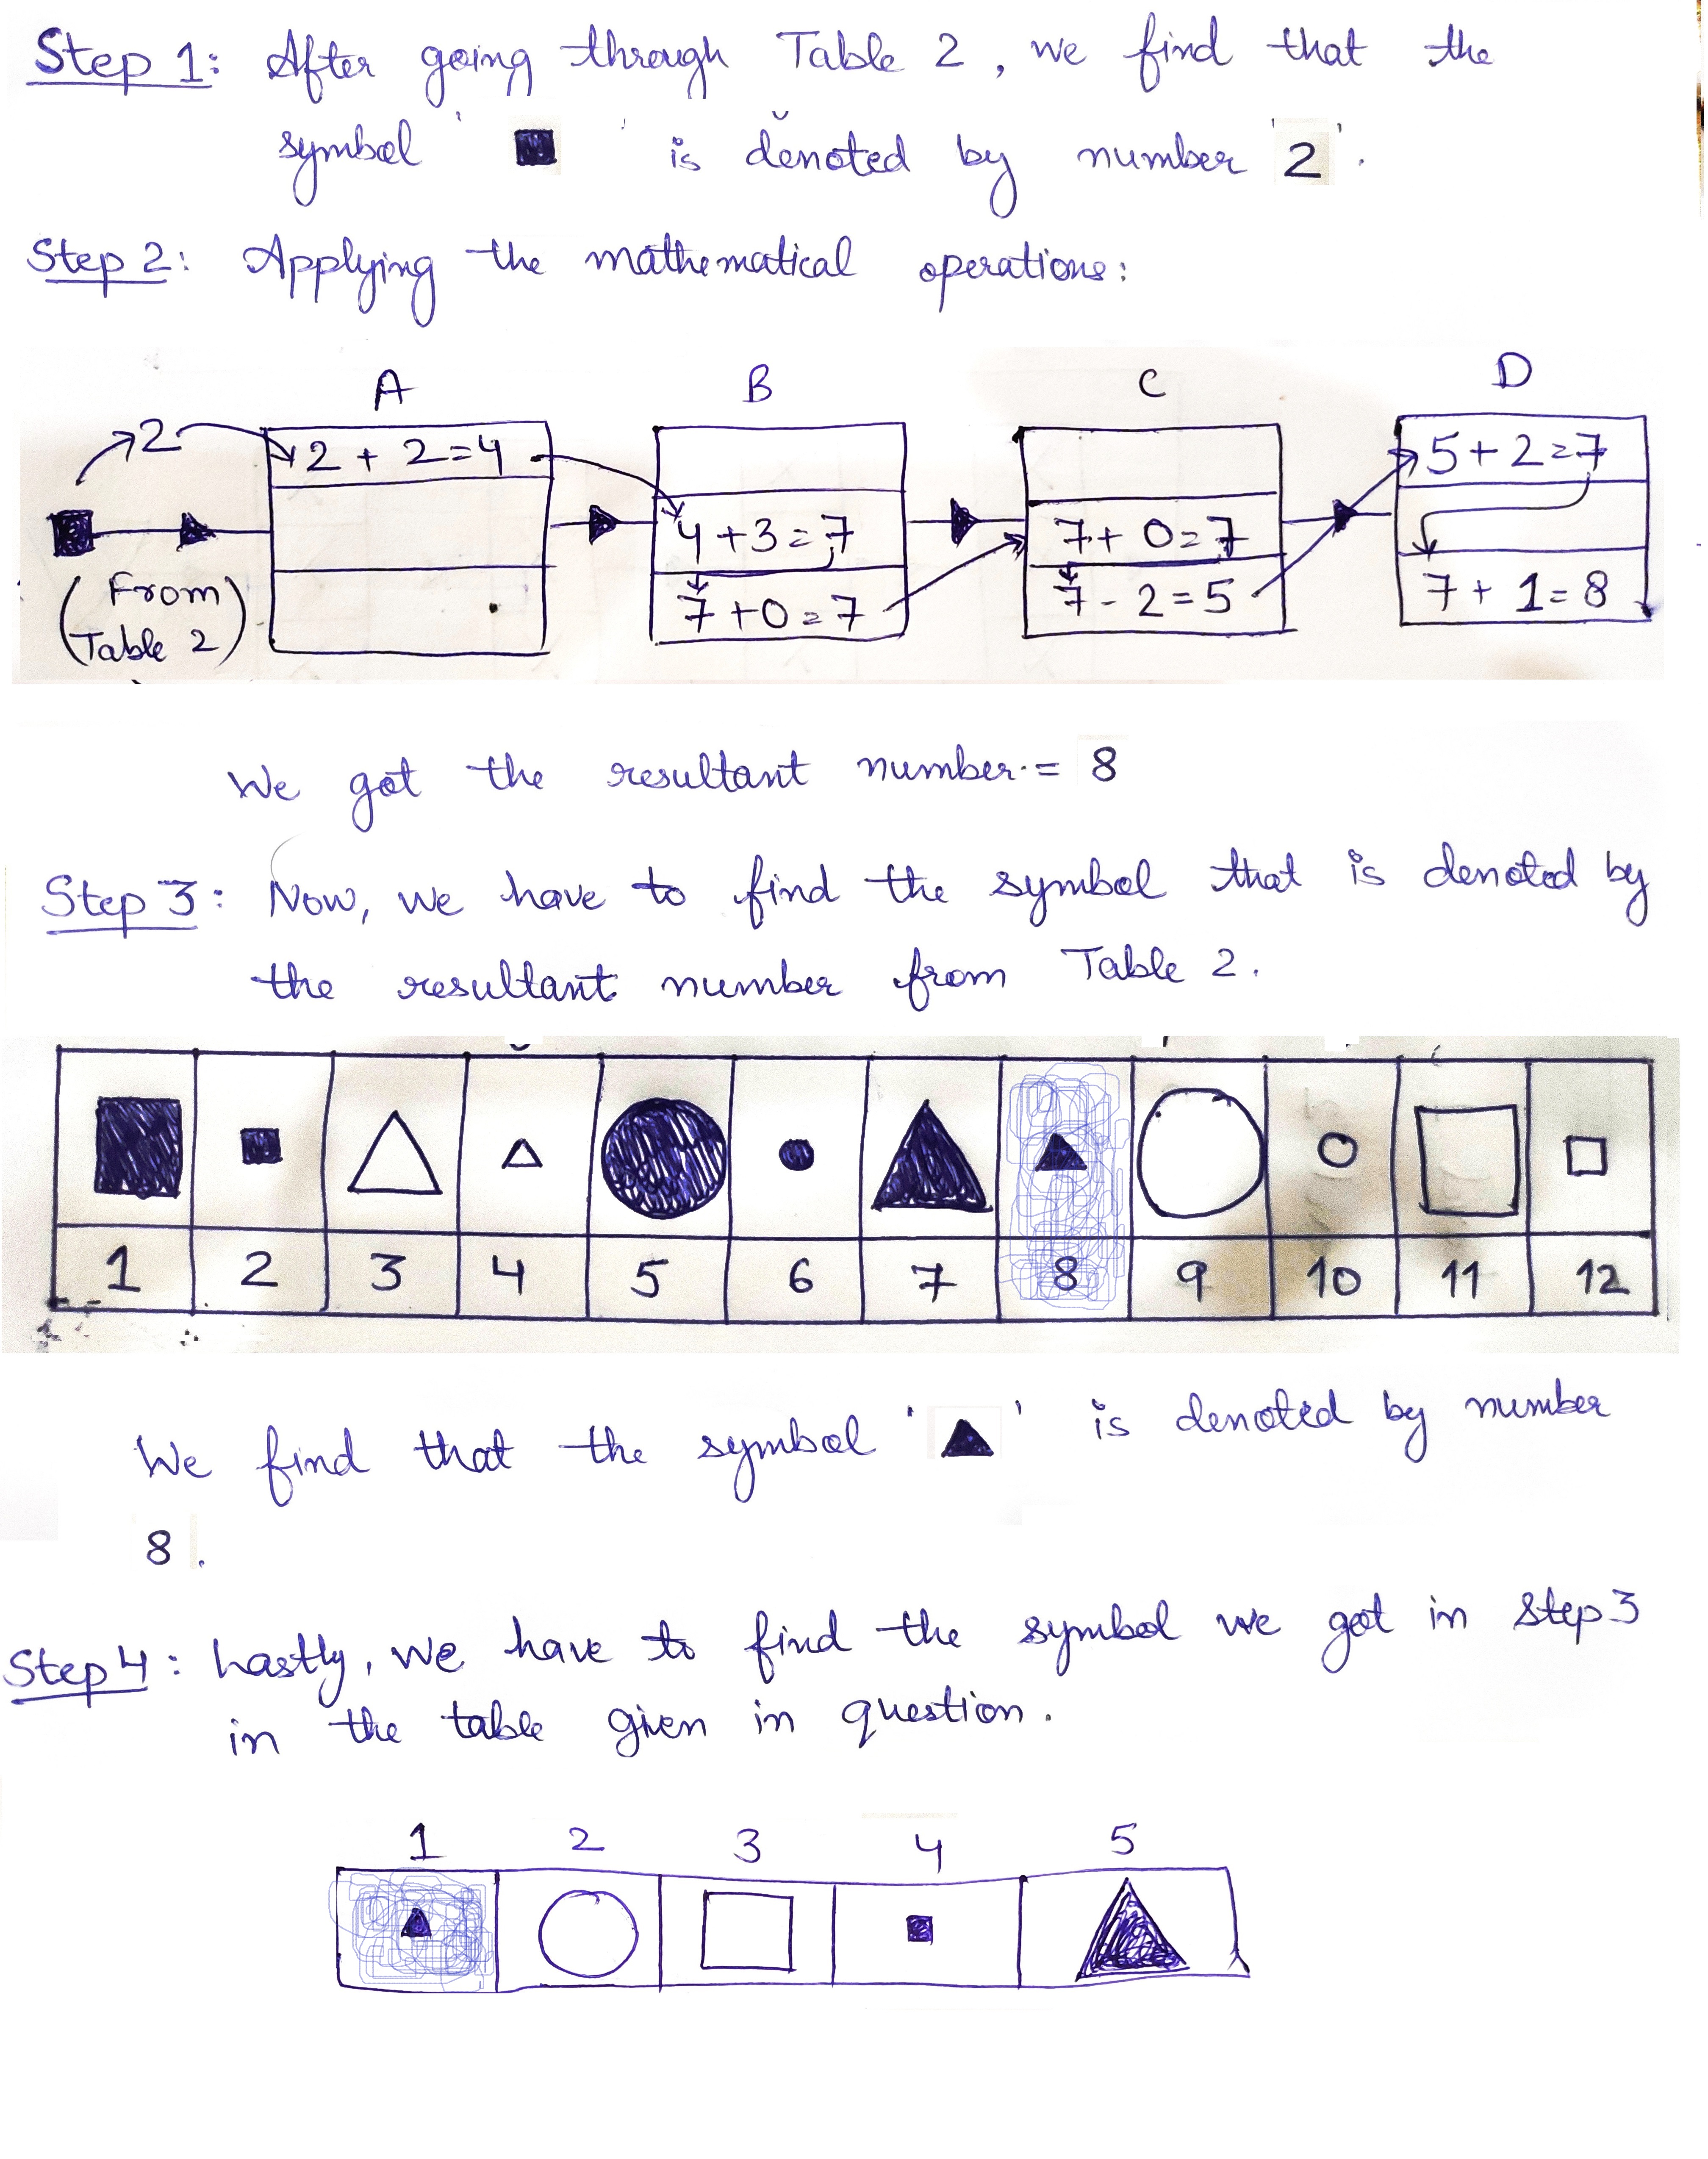 Step 1: After going through Table 2, we find that the
symbol ' ■ ' is denoted by number '2'.
Step 2: Applying the mathematical operations:
A B C D
2
2 + 2 = 4
4 + 3 = 7
7 + 0 = 7
7 + 0 = 7
7 - 2 = 5
5 + 2 = 7
7 + 1 = 8
(From
Table 2)
We got the resultant number = 8
Step 3: Now, we have to find the symbol that is denoted by
the resultant number from Table 2.
1 2 3 4 5 6 7 8 9 10 11 12
We find that the symbol ' ▲ ' is denoted by number
8.
Step 4: Lastly, we have to find the symbol we got in step 3
in the table given in question.
1 2 3 4 5